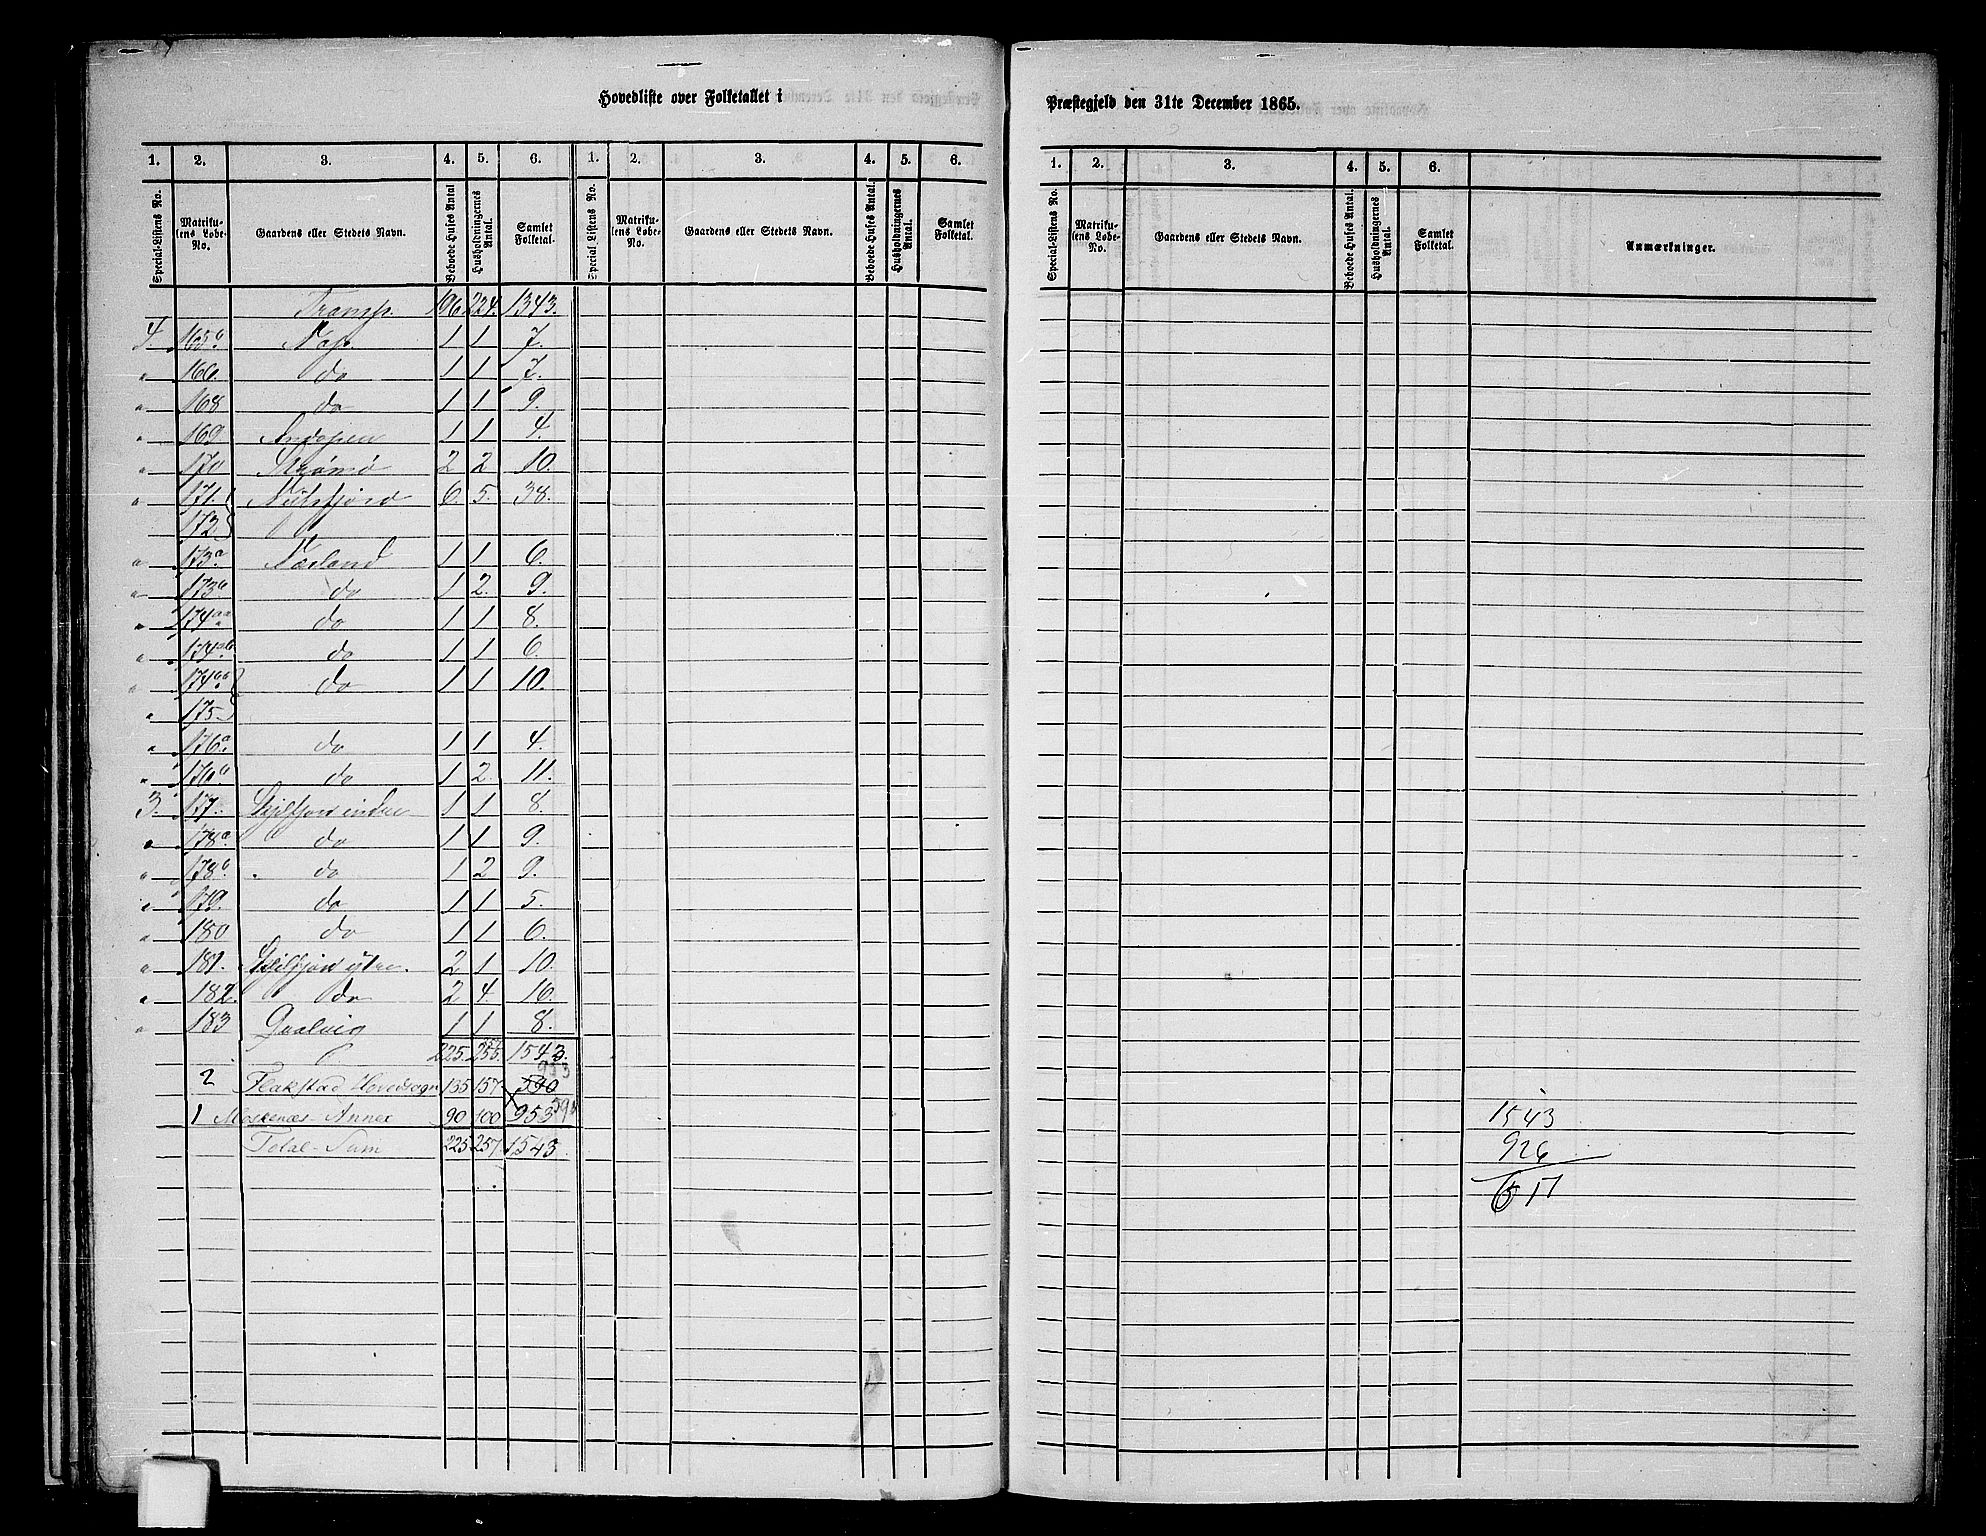 Hovedliste over Folketallet i
1. 2. 3. 4. 5. 6. 1. 2. 3. 4. 5. 6.
Special-Listens No. Matrikulens Løbe-No. Gaardens eller Stedets Navn. Beboede Huses Antal Husholdningernes Antal. Samlet Folketal. Special Listens No. Matrikulens Løbe-No. Gaardens eller Stedets Navn. Beboede Huses Antal. Husholdningernes Antal. Samlet Folketal.
Transp. 196 224. 1343.
4. 165b Nap. 1 1 7.
" 166. do 1 1 7.
" 168 do 1 1 9.
" 169 1 1 4.
" 170 Strømø 2 2 10.
" 171. Nusfjord 6. 5. 38.
172
" 173a Næsland 1 1 6.
" 173b do 1 2. 9.
" 174aa do 1 1 8.
" 174ab do 1 1 6.
" 174b do 1 1 10.
" 175
" 176a do 1 1 4.
" 176b do 1 2. 11.
3. 177. Skjelfjord indre 1 1 8.
" 178a do 1 1 9.
" 178b do 1 2 9.
" 179. do 1 1 5.
" 180 do 1 1 6.
" 181. Skjelfjord ytre. 2 1 10.
" 182. do 2 4. 16.
" 183 Qvalvig 1 1 8.
225. 256. 1543.
953
2 Flakstad Hovedsogn 135 157 590
1 Moskenæs Annex 90 100 953 590
Total-Sum 225 257. 1543.
Præstegjeld den 31te December 1865.
1. 2. 3. 4. 5. 6.
Special-Listens No. Matrikulens Løbe-No. Gaardens eller Stedets Navn. Beboede Huses Antal. Husholdningernes Antal. Samlet Folketal. Anmærkninger.
1543
926
617